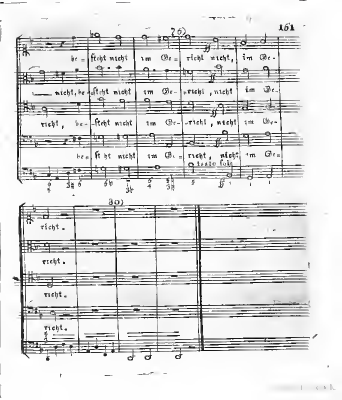 26) 161
be= steht nicht im Ge= richt nicht, im Ge=
nicht, be= steht nicht im Ge= richt, nicht im Ge=
richt, be= steht nicht im Ge= richt, nicht im Ge=
be= steht nicht im Ge= richt, nicht im Ge=
tasto solo
30)
richt.
richt.
richt.
richt.